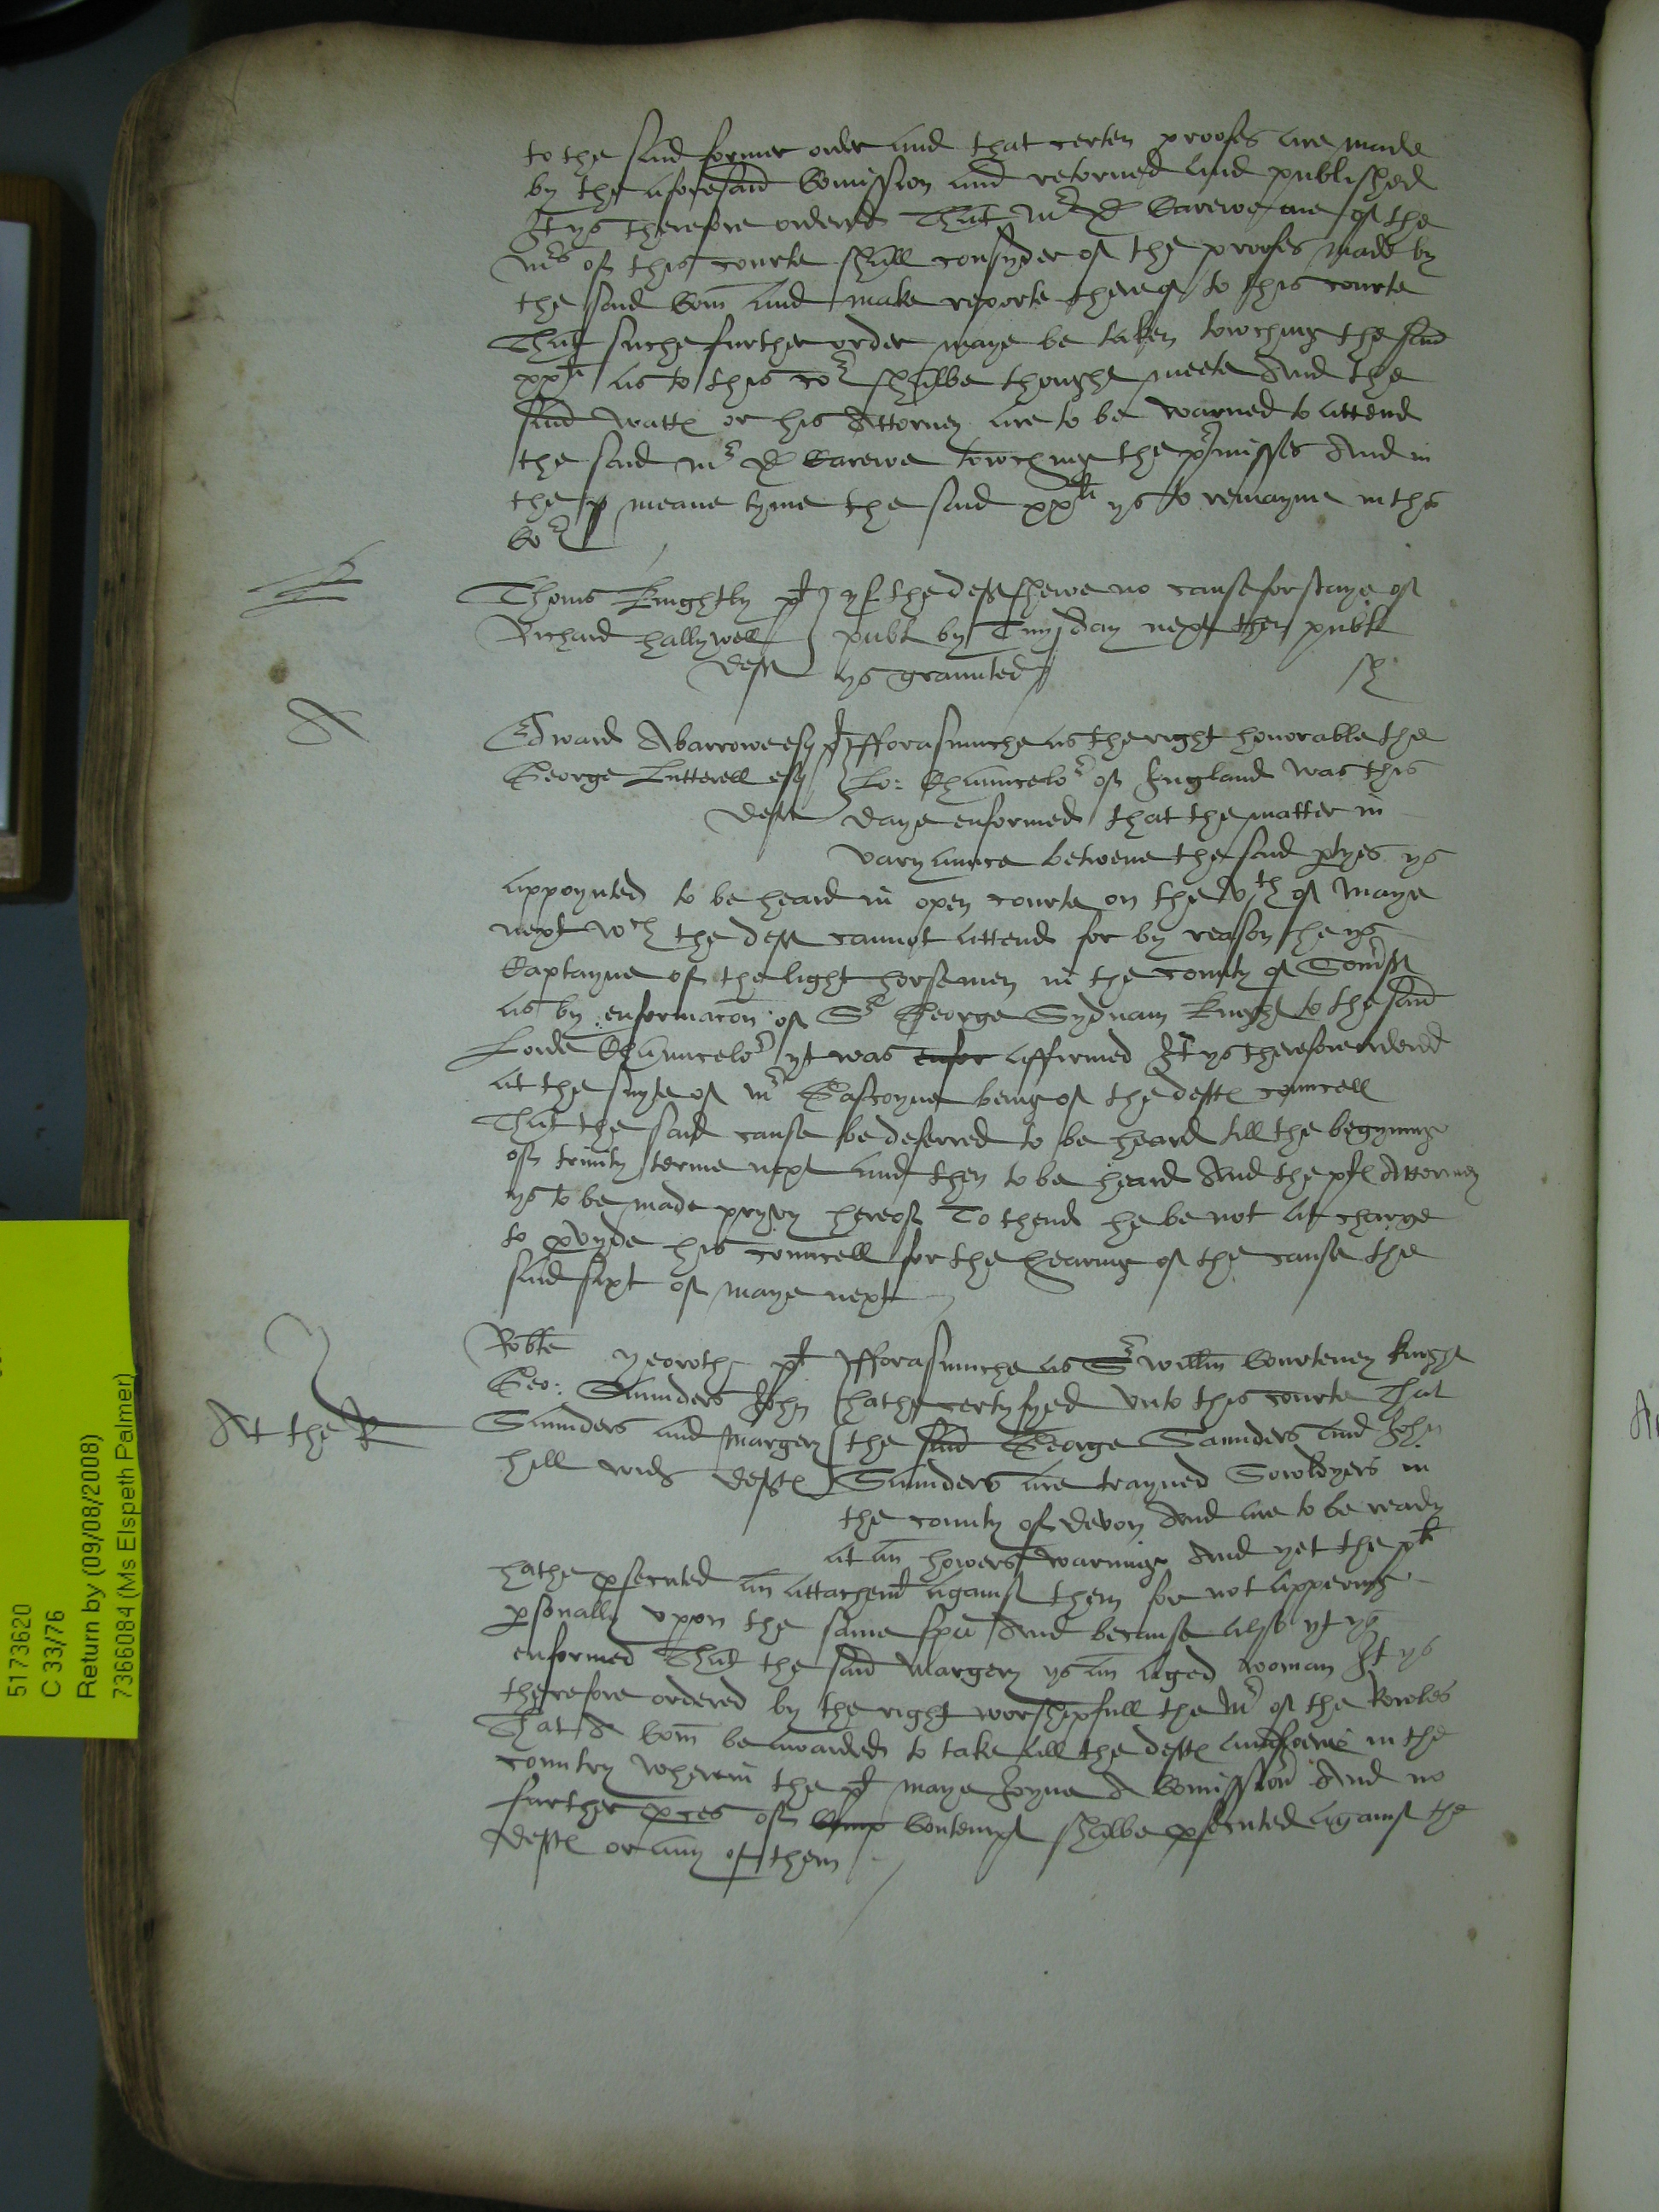 to the said former order and that certen proofes are made
by the aforesaid Comission and retorned and published
It ys therefore ordered That Mr D Carewe one of the
Mrs of this courte shall consyder of the proofes made by
the said Com and make reporte thereof to this courte
That suche further order maye be taken towching the said
xxli as to this cor shalbe thought meete And the
said Watts or his Attorney are to be warned to attend
the said Mr D Carewe towching the prmisses And in
the meane tyme the said xxli ys to remayne in this
Cor
Thoms Knightly pt yf the deft shewe no cause for staye of
Richard hallywell publ by Tuysday next then publ
deft ys graunted
Edward Abarrowe esq pt fforasmuche as the right honorable the
George Lutterell esq Lo: Chauncelor of England was this
deft daye enformed that the matter in
varyaunce betwene the said ptyes ys
appoynted to be heard in open courte on the vjth of Maye
next wch the deft cannot attend for by reason he ys
Captayne of the light horsemen in the county of Somst
as by enformacon of Sr George Sydnam Knight to the said
Lorde Chauncelor yt was enfor affirmed It ys therefore ordered
at the suyte of Mr Gascoyne being of the defts councell
That the said cause be deferred to be heard till the begynninge
of trinity terme next and then to be heard And the plts Attorney
ys to be made pryvy hereof To thend he be not at charge
to pvyde his councell for the hearing of the cause the
said sixt of maye next
Robte yeoroth pt fforasmuche as Sr Willm Courteney knight
Geo: Saunders John hathe certyfyed unto this courte That
At the R
Saunders and Margery the said George Saunders and John
hill wid defts Saunders are trayned Sowldyers in
the county of devon And are to be ready
at an howers warninge And yet the plt
hathe psecuted an attachemt against them for not appering
psonally vppon the same spa And because also yt ys
enformed That the said Margery ys an aged woman It ys
therefore ordered by the right worshipfull the Mr of the Rowles
That A Com be awarded to take all the defts aunsweres in the
country wherein the pt maye Joyne A Comission And no
further pces of Comp Contempt shalbe psecuted against the
defts or any of them
5173620
C 33/76
Return by (09/08/2008)
7366084 (Ms Elspeth Palmer)